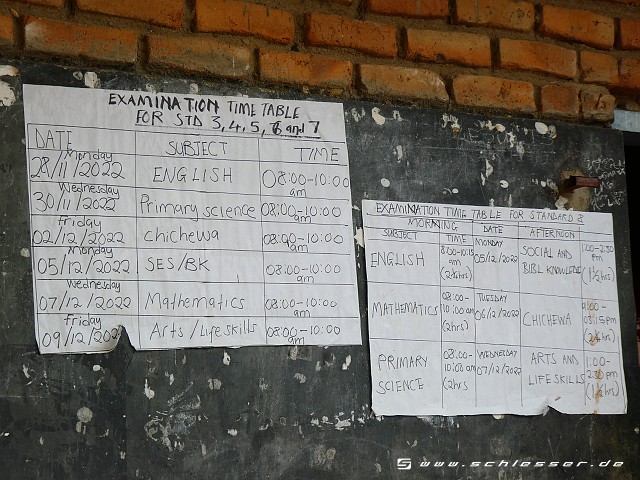 EXAMINATION TIME TABLE
FOR STD 3, 4, 5, 6 and 7
DATE SUBJECT TIME
Monday
28/11/2022 ENGLISH 08:00-10:00
am
Wednesday
30/11/2022 Primary science 08:00-10:00
am
Friday
02/12/2022 Chichewa 08:00-10:00
am
Monday
05/12/2022 SES/BK 08:00-10:00
am
Wednesday
07/12/2022 Mathematics 08:00-10:00
am
Friday
09/12/2022 Arts/Lifeskills 08:00-10:00
am
EXAMINATION TIME TABLE FOR STANDARD 8
MORNING DATE AFTERNOON
SUBJECT TIME
ENGLISH 8:00-10:15 am (2¼hrs) MONDAY 05/12/2022 SOCIAL AND BIBL KNOWLEDGE 1:00-2:30 pm (1½hrs)
MATHEMATICS 08:00-10:00 am (2hrs) TUESDAY 06/12/2022 CHICHEWA 03:15 pm
PRIMARY SCIENCE 08:00-10:00 am (2hrs WEDNESDAY 07/12/2022 ARTS AND LIFESKILLS 1:00-2:30 pm (1½hrs)
www.schlesser.de